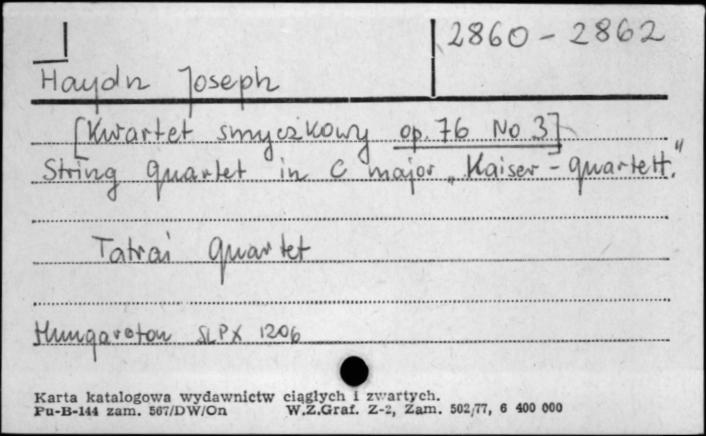 2860 - 2862
Haydn Joseph
[Kwartet smyczkowy op. 76 No 3]
String quartet in C major „Kaiser - quartett."
Tatrai quartet
Hungaroton SLPX 1206
Karta katalogowa wydawnictw ciągłych i zwartych.
Pu-B-144 zam. 567/DW/On W.Z.Graf. Z-2, Zam. 502/77, 6 400 000